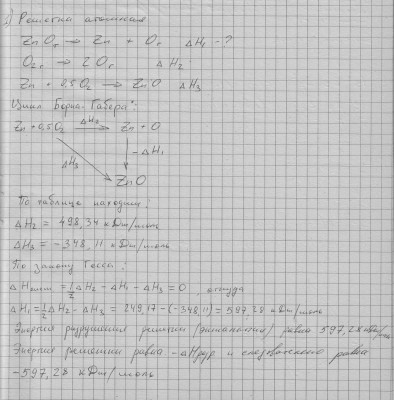 1) Решетка атомная
ZnOт → Zn + Oг ΔH1 - ?
O2г → 2Oг ΔH2
Zn + 0,5O2 → ZnO ΔH3
Цикл Борна-Габера:
Zn + 0,5O2 ΔH2 → Zn + O
ΔH3 -ΔH1
ZnO
По таблице находим:
ΔH2 = 498,34 кДж/моль
ΔH3 = -348,11 кДж/моль
По закону Гесса:
= ½ΔH2 - ΔH1 - ΔH3 = 0 откуда
ΔH1 = ½ΔH2 - ΔH3 = 249,17 - (-348,11) = 597,28 кДж/моль
Энергия разрушения решетки равна 597,28 кДж/моль
Энергия решетки равна -ΔHразр и следовательно равна
-597,28 кДж/моль